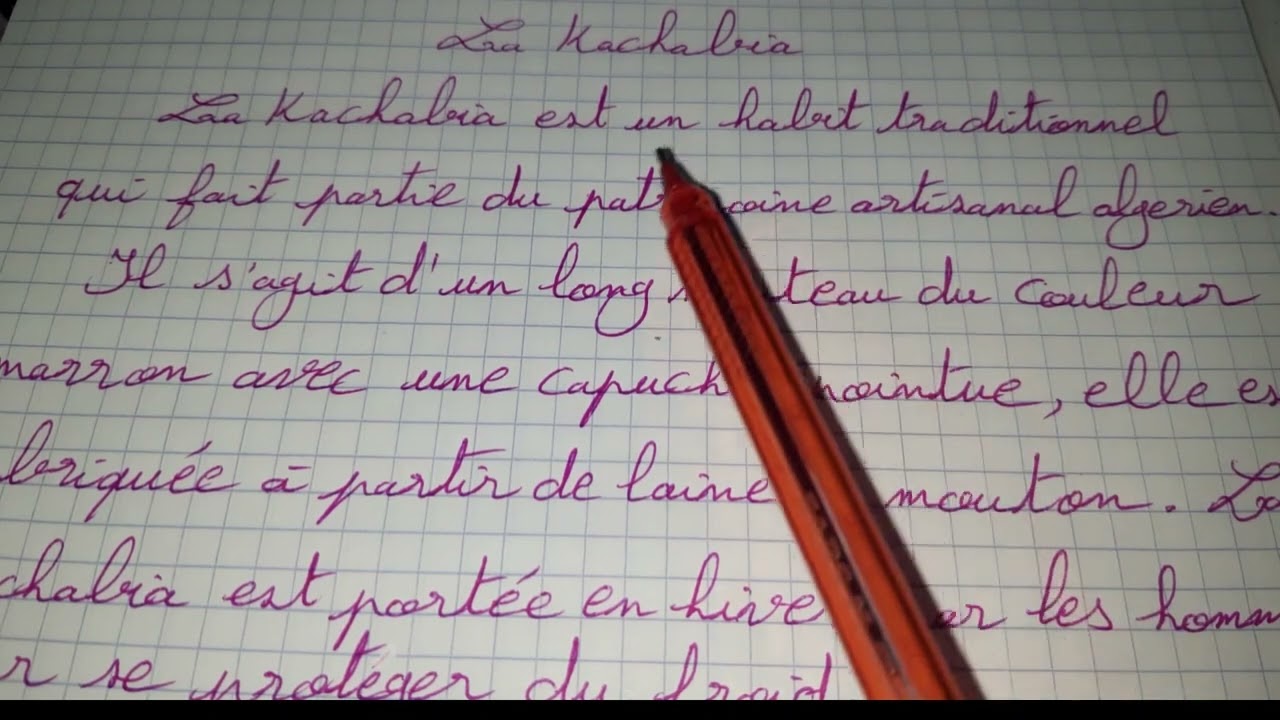 La Kachabia
La Kachabia est un habit traditionnel
qui fait partie du patrimoine artisanal algerien.
Il s'agit d'un long manteau du couleur
marron avec une capuche pointue, elle es
briquée à partir de laine mouton. La
chabia est portée en hiver par les homm
r se protéger du froid